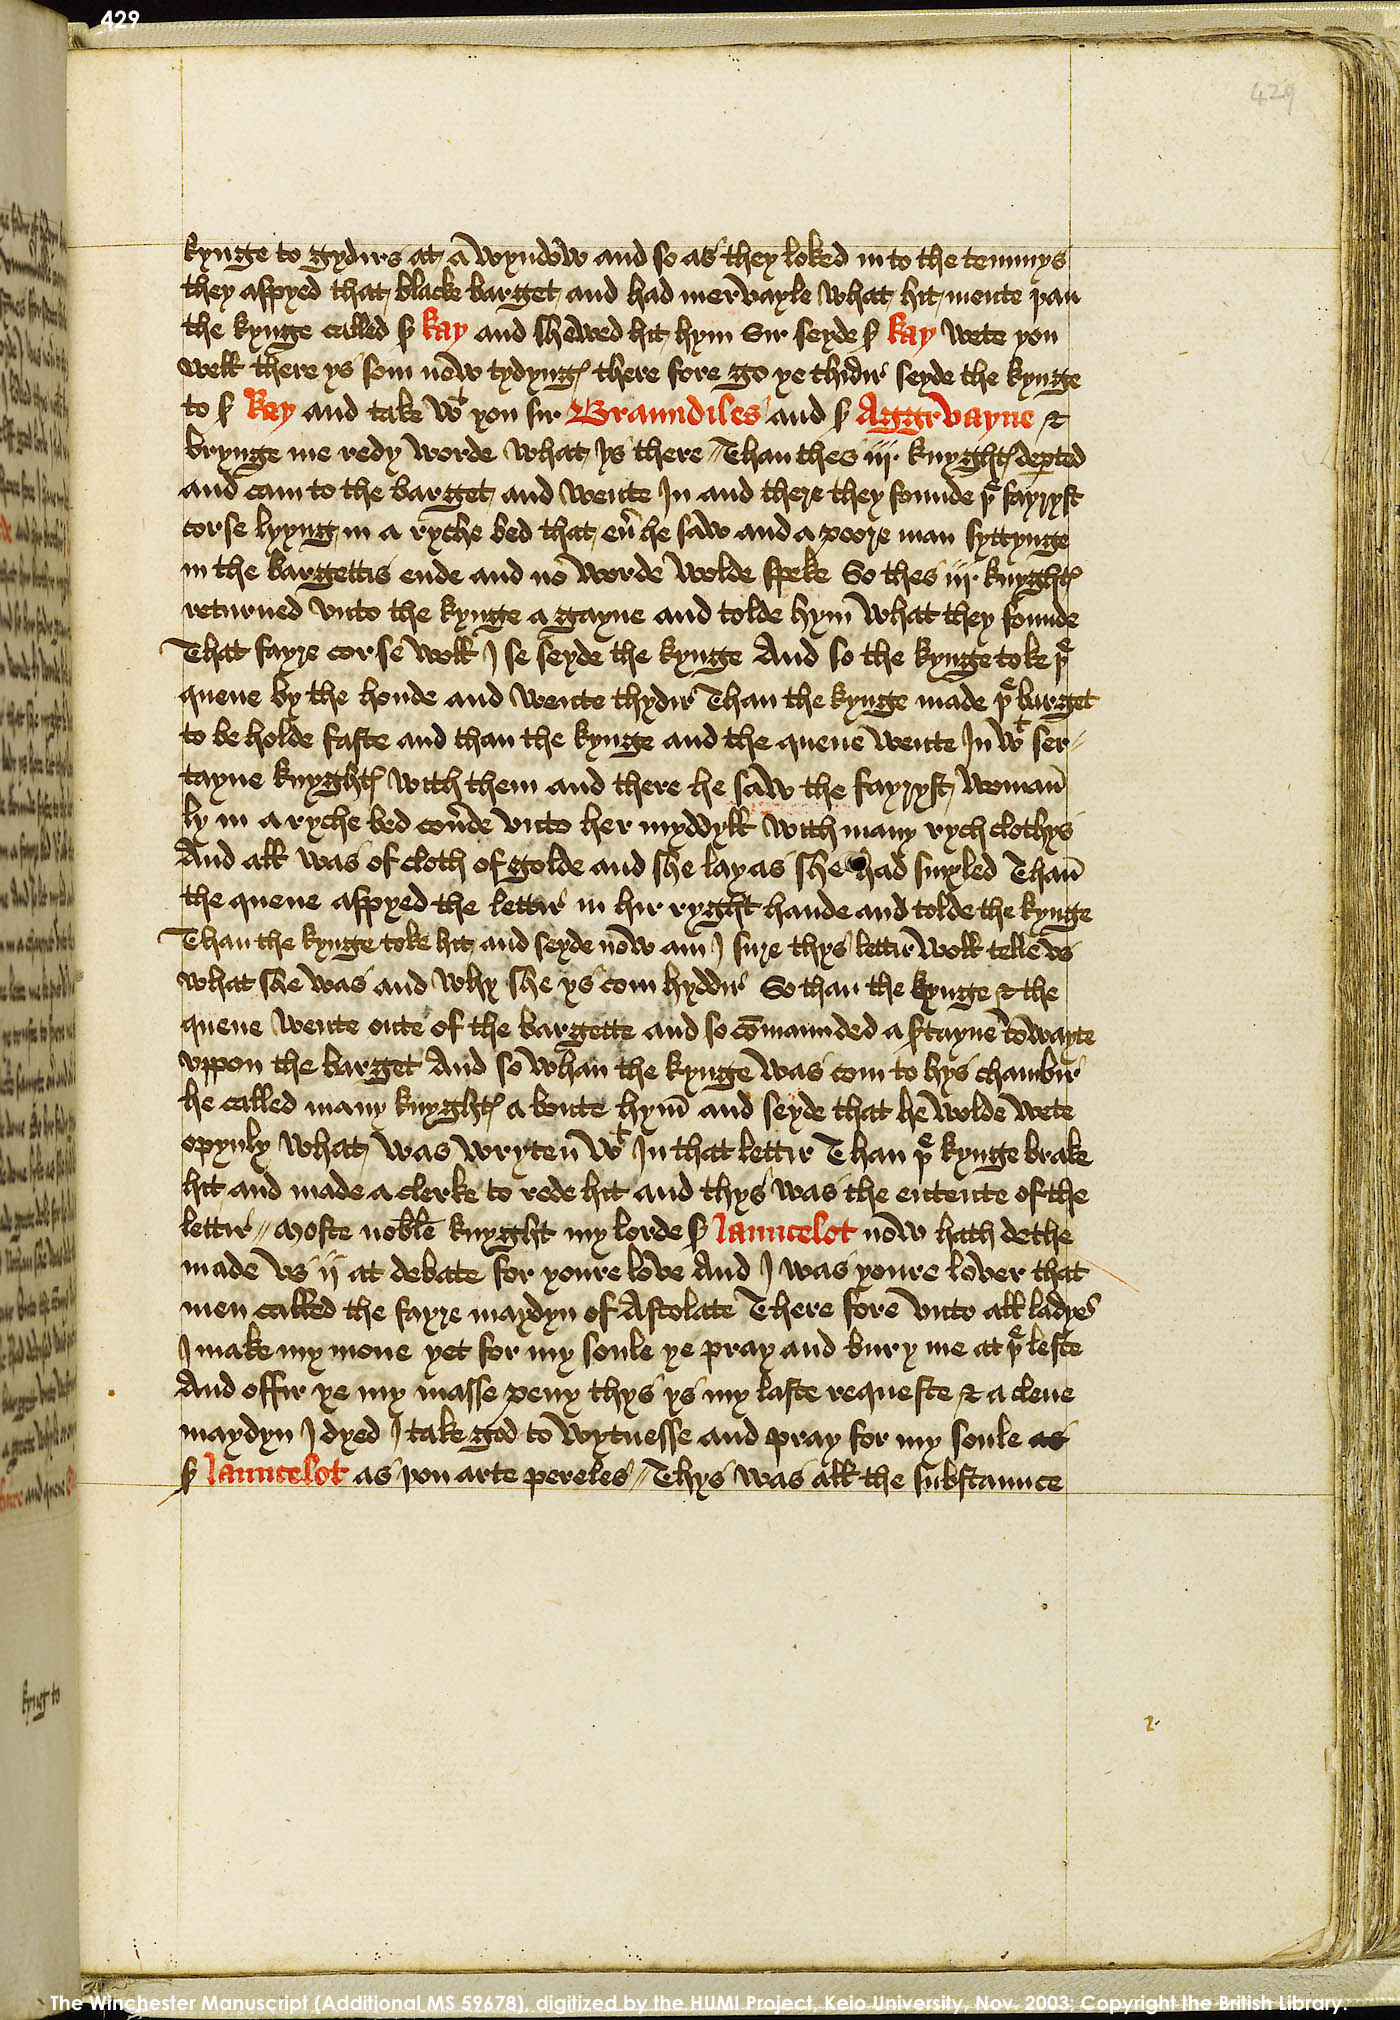 429
429
kynge to gydirs at a wyndow and so as they loked in to the temmys
they aspyed that blacke barget and had mervayle what hit mente þan
the kynge called sʳ kay and shewed hit hym Sir seyde sʳ kay wete you
well there ys som now tydyngꝭ there fore go ye thidir seyde the kynge
to sʳ Kay and take wᵗ you sir Braundiles and sʳ Aggrvayne &
brynge me redy worde what ys there // Than thes iiij knyghtꝭ depted
and cam to the barget and wente In and there they founde þᵉ fayryst
corse lyyng in a ryche bed that eũ he saw and a poore man syttynge
in the bargettis ende and no worde wolde speke So thes iij knyghtꝭ
returned vnto the kynge a gayne and tolde hym what they founde
That fayre corse woll I se seyde the kynge And so the kynge toke þᵉ
quene by the honde and wente thydir Than the kynge made þᵉ barget
to be holde faste and than the kynge and the quene wente In wᵗ ser //
tayne knyghtꝭ with them and there he saw the fayryst woman̄
ly in a ryche bed coũde vnto her myddyll with many rych clothys
And all was of cloth of golde and she lay as she had smyled Than̄
the quene aspyed the lettir in hir ryght hande and tolde the kynge
Than the kynge toke hit and seyde now am I sure thys lettir woll telle vs
what she was and why she ys com hyddir So than the kynge & the
quene wente oute of the bargette and so cōmaunded a ſtayne to wayte
vppon the barget And so whan the kynge was com to hys chambir
he called many knyghtꝭ a boute hym̄ and seyde that he wolde wete
opynly what was wryten̄ wᵗ In that lettir Than þᵉ kynge brake
hit and made a clerke to rede hit and thys was the entente of the
lettir // Moste noble knyght my lorde sʳ launcelot now hath dethe
made vs ij at debate for youre love And I was youre lover that
men called the fayre maydyn of Astolate There fore vnto all ladyes
I make my mone yet for my soule ye pray and bury me at þᵉ leste
And offir ye my masse peny thys ys my laste requeste & a clene
maydyn I dyed I take god to wytnesse and pray for my soule as
sʳ launcelot as þou arte pereles // Thys was all the substaunce
kyng to
The Winchester Manuscript (Additional MS 59678), digitized by the HUMI Project, Keio University, Nov. 2003; Copyright the British Library.